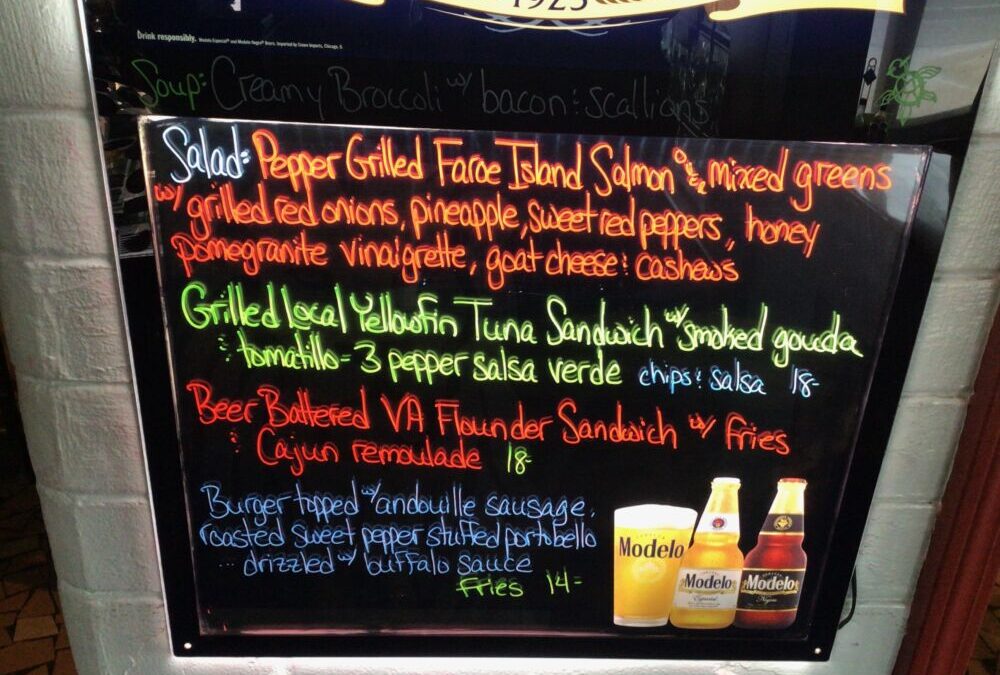 1925
Drink responsibly. Modelo Especial® and Modelo Negra® Beers. Imported by Crown Imports, Chicago, IL
Soup: Creamy Broccoli w/ bacon & scallions
Salad: Pepper Grilled Faroe Island Salmon o/ mixed greens
w/ grilled red onions, pineapple, sweet red peppers, honey
pomegranite vinaigrette, goat cheese & cashews
Grilled Local Yellowfin Tuna Sandwich w/ smoked gouda
& tomatillo - 3 pepper salsa verde chips & salsa 18-
Beer Battered VA Flounder Sandwich w/ fries
& Cajun remoulade 18-
Burger topped w/ andouille sausage,
roasted sweet pepper stuffed portobello
... drizzled w/ buffalo sauce
fries 14-
Modelo
Modelo
Especial
Modelo
Negra